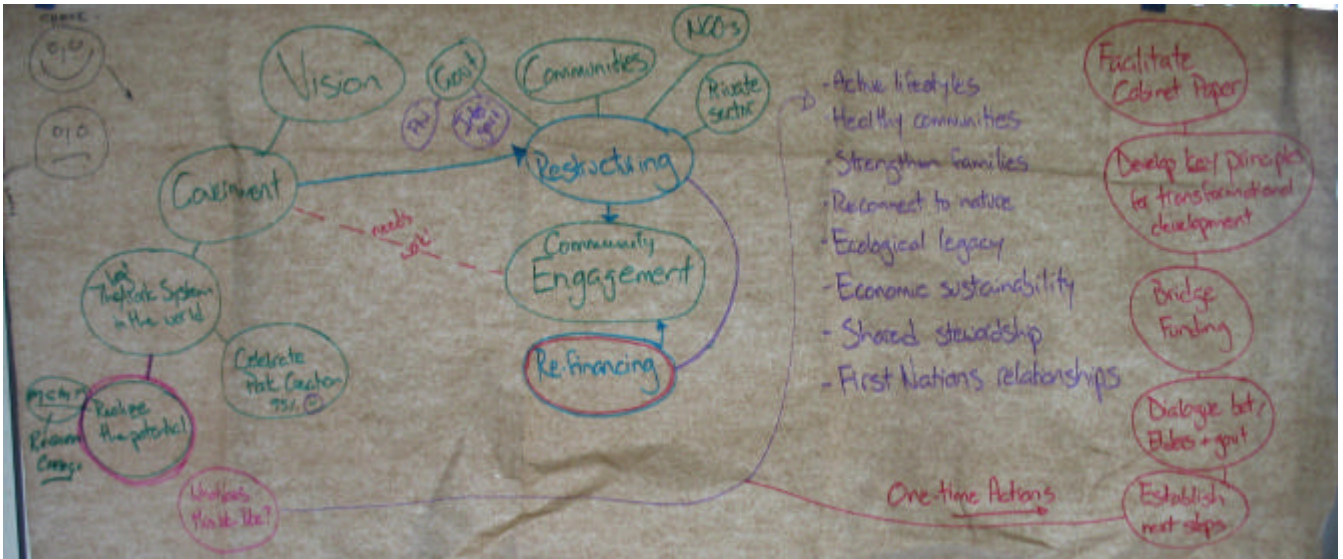 Vision
Gov't
Communities
NGOs
Private
sector
Restructuring
Government
needs
Community
Engagement
Re-Financing
Park System
in the world
Celebrate
Park Creation
Realize
the potential
- Active lifestyles
- Healthy communities
- Strengthen families
- Reconnect to nature
- Ecological legacy
- Economic sustainability
- Shared stewardship
- First Nations relationships
Facilitate
Cabinet Paper
Develop key principles
for transformational
development
Bridge
Funding
Dialogue bet/
Elders + gov't
Establish
next steps
One-time Actions